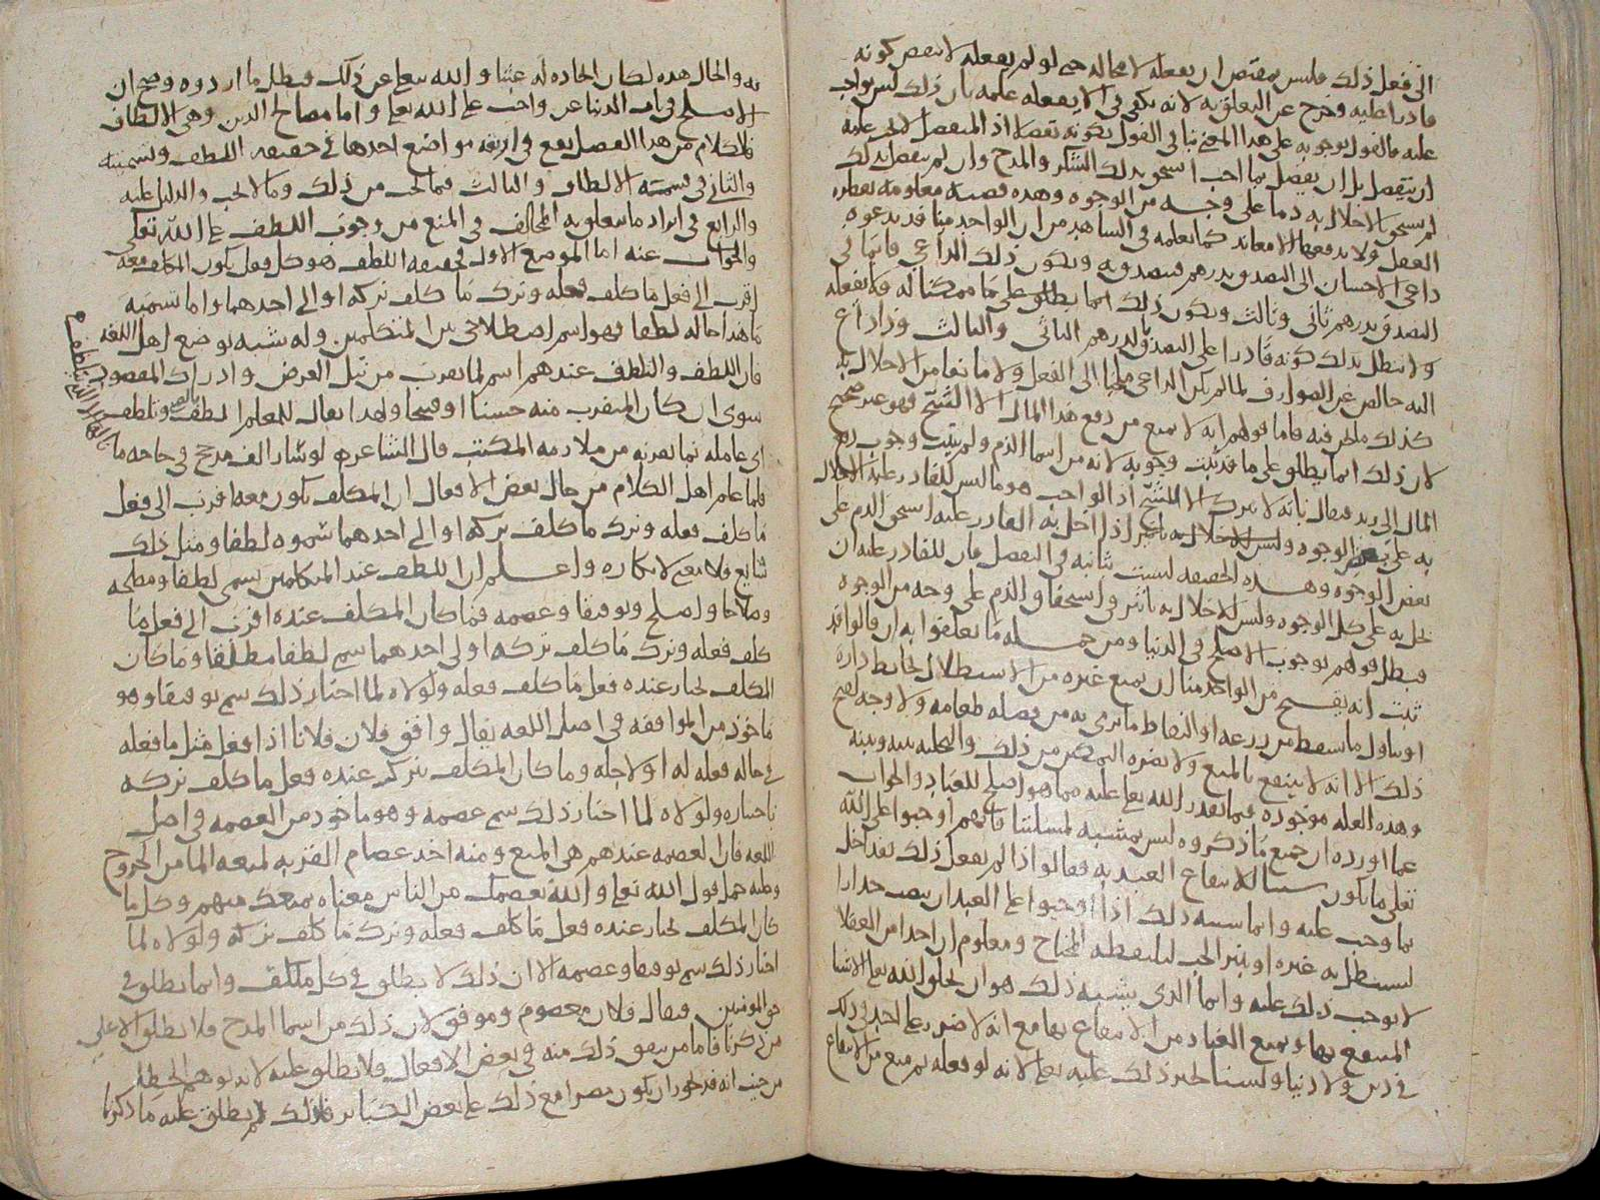 الى فعل ذلك فليس يقتضي ان يفعله لا محاله حتى لو لم يفعله لا نتقض كونه
قادرا عليه وخرج عن التعلق به لانه يكفي في ان لا يفعله علمه بان ذلك ليس بواجب
عليه فالقول بوجوبه على هذا المعنى ينافي القول بكونه تفضلا اذ المتفضل لا يجب عليه
ان يتفضل بل ان تفضل بما احب استحق بذلك الشكر والمدح وان لم يتفضل بذلك
لم يستحق بالاخلال به ذما على وجه من الوجوه وهذه قضيه معلومه بفطره
العقل ولا يدفعها الا معاند كما نعلمه في الشاهد من ان الواحد منا قد يدعوه
داعي الاحسان الى التصدق بدرهم فيتصدق به ويكون ذلك الداعي قائما في
التصدق بدرهم ثاني وثالث ويكون ذلك انما يطلق على ما ممكنا له فلا يفعله
ولا يبطل بذلك كونه قادرا على التصدق بالدرهم الثاني والثالث وداع
اليه خالص عن الصوارف لما لم يكن الداعي ملجيا الى الفعل ولا مانعا من الاخلال به
كذلك ما نحن فيه فاما قولهم انه لا يمنع من دفع هذا المال الا الشحيح فهو غير صحيح
لان ذلك انما يطلق على ما قد ثبت وجوبه لانه من اسما الذم ولم يثبت وجوب دفع
المال الى زيد فيقال بانه لا يترك الا الشحيح اذ الواجب هو ما ليس للقادر عليه الاخلال
به على بعض الوجوه وللاخلال به تاثير اذا اخل به القادر عليه استحق الذم على
بعض الوجوه وهذه الحقيقه ليست ثابته في التفضل فان للقادر عليه ان
يخل به على كل الوجوه وليس للاخلال به تاثير في استحقاق الذم على وجه من الوجوه
فبطل قولهم بوجوب الاصلح في الدنيا ومن جمله ما تعلقوا به ان قالوا قد
ثبت انه يقبح من الواحد منا ان يمنع غيره من الاستظلال بحايط داره
او تناول ما سقط من زرعه او التقاط ما يرمى به من فضله طعامه ولا وجه لقبح
ذلك الا انه لا ينتفع بالمنع ولا يضره التمكين من ذلك والتخليه بينه وبينه
وهذه العله موجوده فيما يقدر الله تعالى عليه مما هو اصلح للعباد والجواب
عما اورده ان جميع ما ذكروه ليس بمشبه لمسئلتنا فانهم اوجبوا على الله
تعالى ما يكون سببا لانتفاع العبد به فقالوا اذا لم يفعل ذلك فقد اخل
بما وجب عليه وانما يشبه ذلك اذا اوجبوا على العبد ان ينصب جدارا
ليستظل به غيره او ينثر الحب ليلتقطه المحتاج ومعلوم ان احدا من العقلا
لا يوجب ذلك عليه وانما الذي يشبه ذلك هو ان يخلق الله تعالى الاشيا
المنتفع بها ويمنع العباد من الانتفاع بها مع انه لا ضرر على احد في ذلك
في دين ولا دنيا ولسنا نجيز ذلك عليه تعالى لانه لو فعله ثم منع من الانتفاع
به والحال هذه لكان ايجاده له عبثا والله تعالى عن ذلك فبطل ما اردوه وصح ان
الاصلح في باب الدنيا غير واجب على الله تعالى واما مصالح الدين وهي الالطاف
فالكلام من هذا الفصل يقع في اربعه مواضع احدها في حقيقه اللطف وتسميته
والثاني في قسمته الالطاف والثالث فيما يجب من ذلك وما لا يجب والدليل عليه
والرابع في ايراد ما يتعلق به المخالف في المنع من وجوب اللطف على الله تعالى
والجواب عنه اما الموضع الاول في حقيقه اللطف هو كل فعل يكون المكلف معه
اقرب الى فعل ما كلف فعله وترك ما كلف تركه او الى احدهما واما تسميه
ما هذا حاله لطفا فهو اسم اصطلاحي بين المتكلمين وله شبه بوضع اهل اللغه
فان اللطف والتلطف عندهم اسم لما يقرب من نيل الغرض وادراك المقصود
سوى ان كان المتقرب منه حسنا او قبيحا ولهذا يقال للمعلم الطف بالصبي وتلطف
اي عامله بما يقربه من ملازمه المكتب قال الشاعر لو سار الف مدجج في حاجه ما
فلما علم اهل الكلام من حال بعض الافعال ان المكلف يكون معه اقرب الى فعل
ما كلف فعله وترك ما كلف تركه او الى احدهما سموه لطفا ومثل ذلك
شايع ولا معنى لانكاره واعلم ان اللطف عند المتكلمين يسمى لطفا ومصلحه
وصلاحا واصلح وتوفيقا وعصمه فما كان المكلف عنده اقرب الى فعل ما
كلف فعله وترك ما كلف تركه او الى احدهما سمي لطفا مطلقا وما كان
المكلف يختار عنده فعل ما كلف فعله ولولاه لما اختار ذلك سمي توفيقا وهو
ماخوذ من الموافقه في اصل اللغه يقال وافق فلان فلانا اذا فعل مثل ما فعله
في حاله فعله له او لاجله وما كان المكلف يترك عنده فعل ما كلف تركه
باختياره ولولاه لما اختار ذلك سمي عصمه وهو ماخوذ من العصمه في اصل
اللغه فان العصمه عندهم هي المنع ومنه اخذ عصام القربه لمنعه الما من الخروج
وعليه حمل قول الله تعالى والله يعصمك من الناس معناه يمنعك منهم وكل ما
كان المكلف يختار عنده فعل ما كلف فعله وترك ما كلف تركه ولولاه لما
اختار ذلك سمي توفيقا وعصمه الا ان ذلك لا يطلق في كل مكلف وانما يطلق في
حق المومنين فيقال فلان معصوم وموفق لان ذلك من اسما المدح فلا يطلق الا على
من ذكرنا فاما من يتفق ذلك منه في بعض الافعال فلا يطلق عليه لانه يوهم الخطا
من حيث انه قد يجوز ان يكون مصرا مع ذلك على بعض الكبائر فلذلك لم يطلق عليه ما ذكرنا